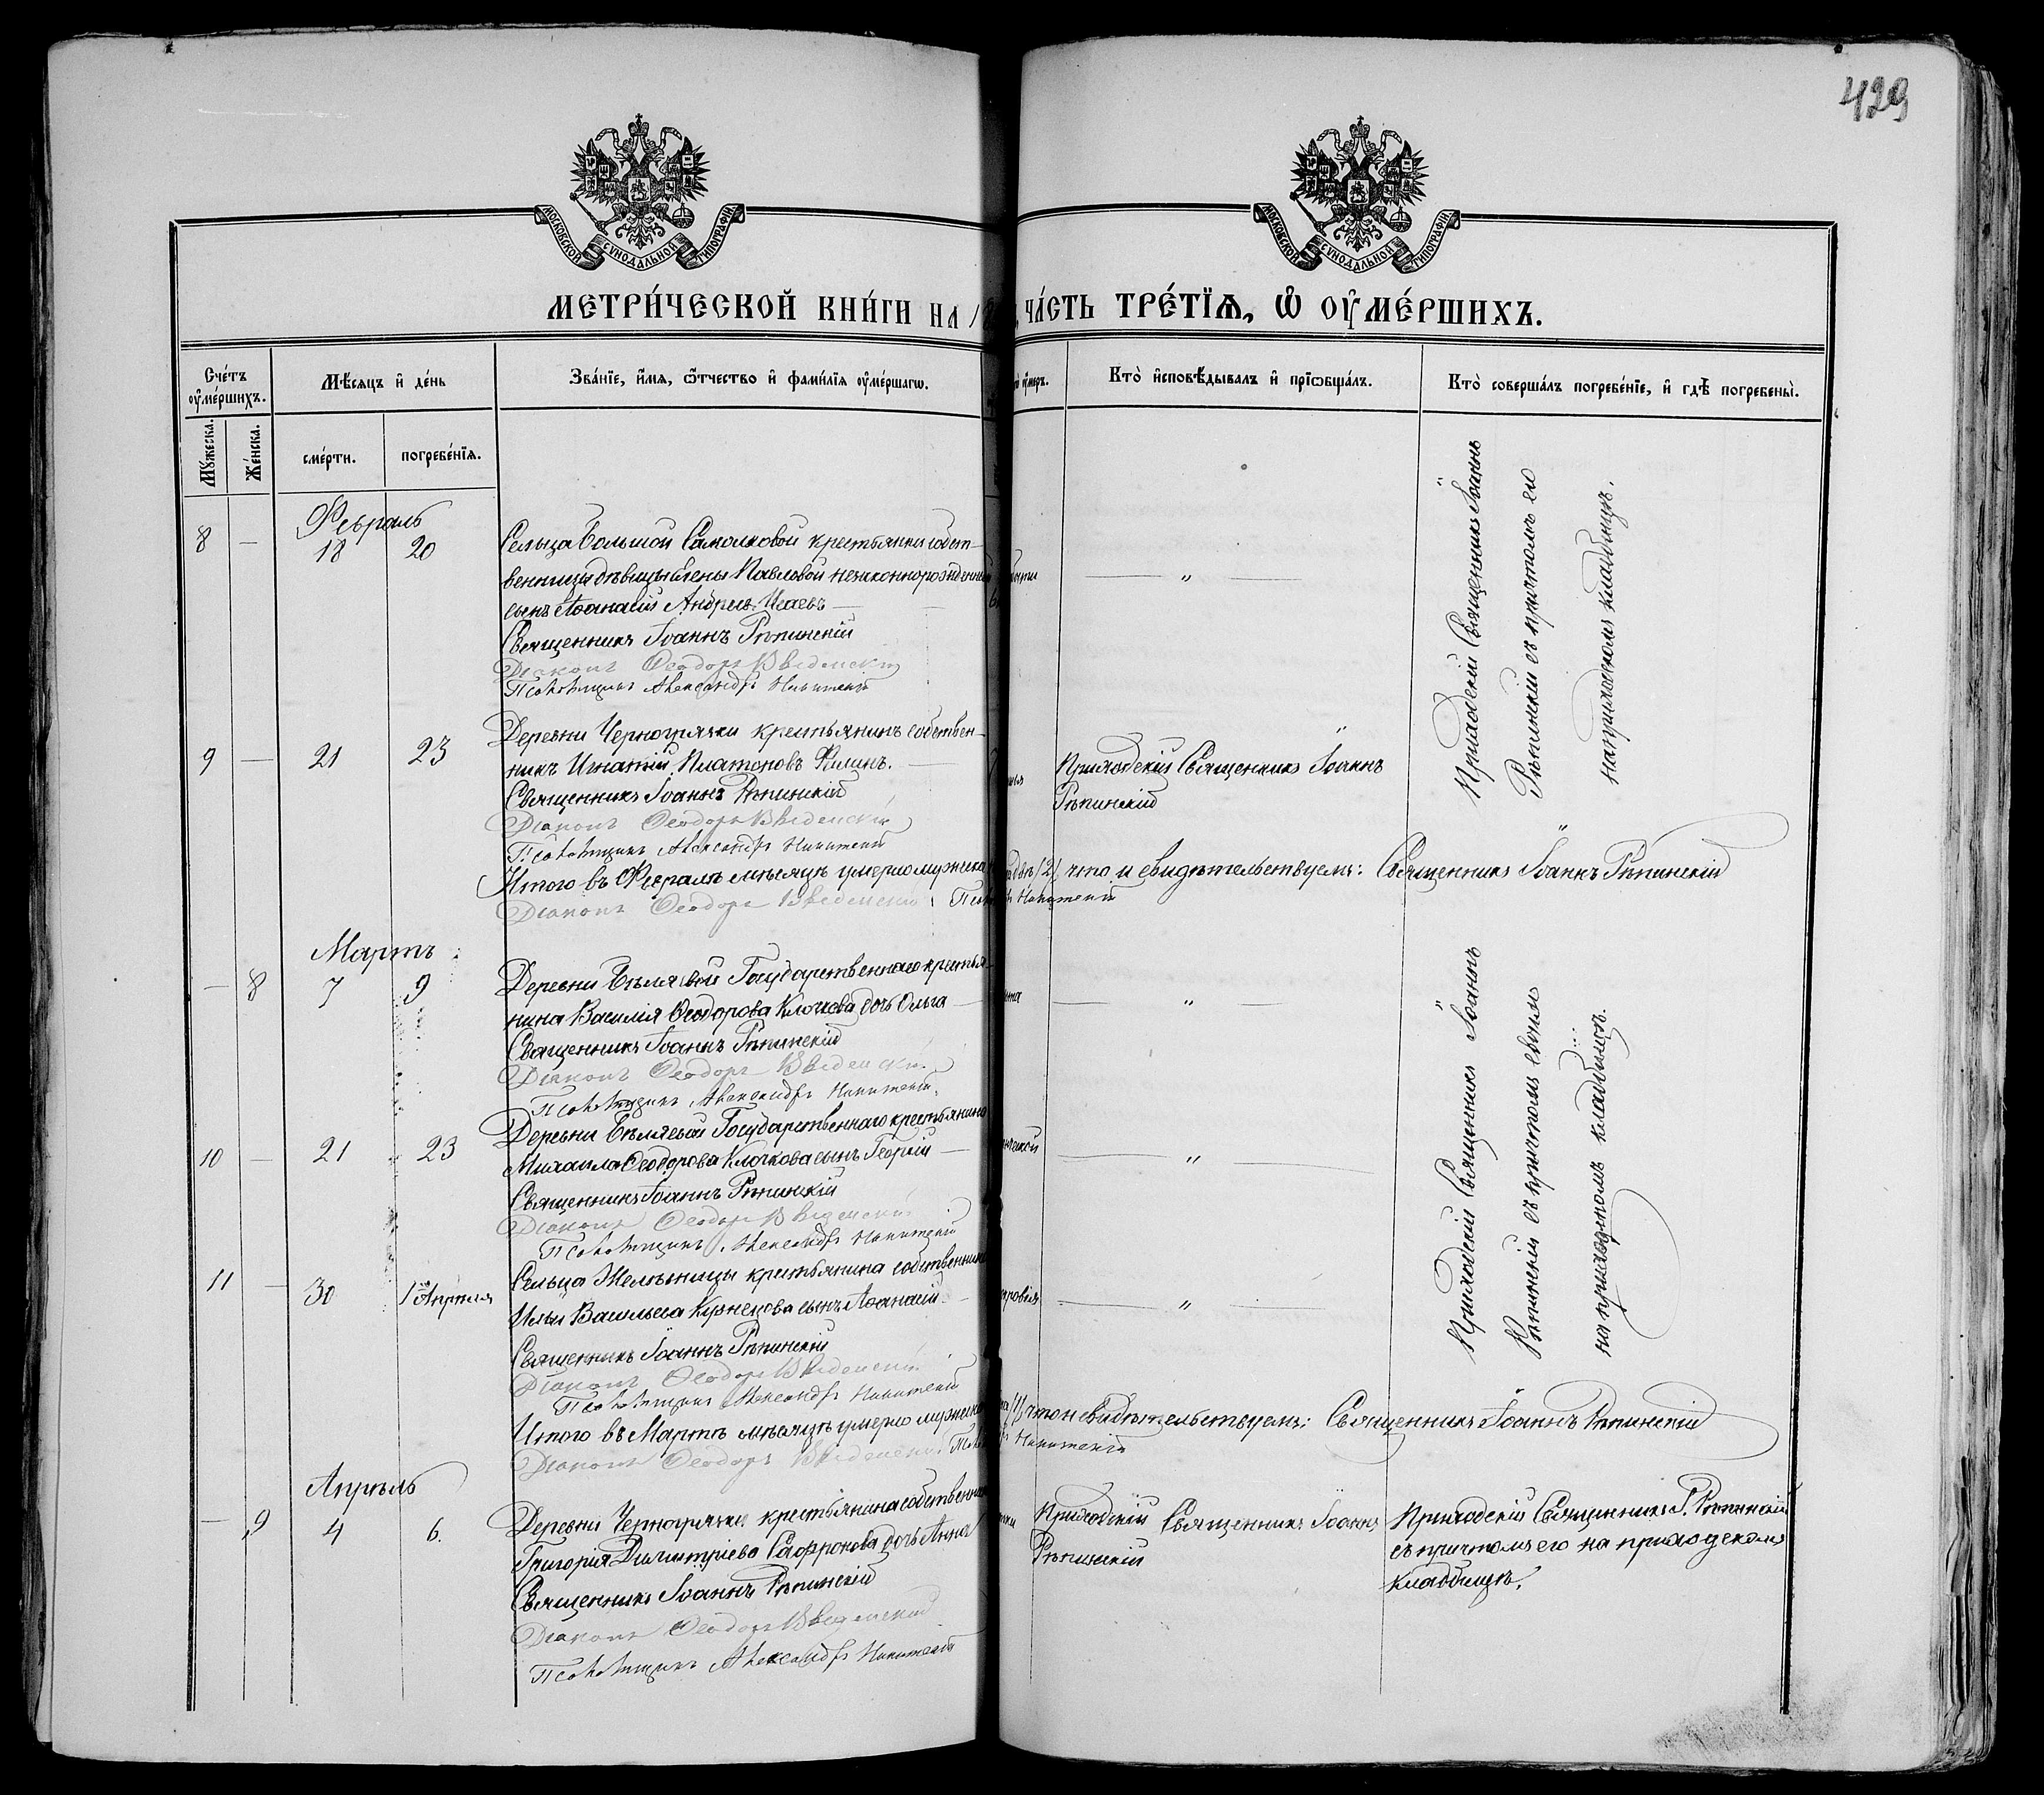 429
МОСКОВСКОЙ СѴНОДАЛЬНОЙ ТИПОГРАФІИ
МОСКОВСКОЙ СѴНОДАЛЬНОЙ ТИПОГРАФІИ
МЕТРИ́ЧЕСКОЙ КНИ́ГИ НА 1
ЧА́СТЬ ТРЕ́ТЇѦ, Ѡ ОУМЕ́РШИХЪ.
Сче́тъ оуме́ршихъ.
Мѣ́сяцъ и де́нь
Зва́нїе, и́мя, ѿтчество и фами́лїя оуме́ршагѡ.
Кто̀ исповѣ́дывалъ и прїѡбща́лъ.
Кто̀ соверша́лъ погребе́нїе, и гдѣ̀ погребены̀.
Мꙋ́жеска.
Же́нска.
сме́рти.
погребе́нїѧ.
Февраль
8 — 18 20
Сельца Большой Самолковой крестьянки собст-
венницы дѣвицы Елены Павловой незаконнорожденный
сынъ Аѳанасій
Священникъ Іоаннъ Рѣпинскій
Діаконъ Ѳеодоръ Введенскій
Псаломщикъ Александръ Никитскій
— „
Приходскій Священникъ Іоаннъ
Рѣпинскій съ причтомъ его
на приходскомъ кладбищѣ.
9 — 21 23
Деревни Черногрязки крестьянинъ собствен-
никъ Игнатій Платоновъ Филинъ. —
Священникъ Іоаннъ Рѣпинскій
Діаконъ Ѳеодоръ Введенскій
Псаломщикъ Александръ Никитскій
Приходскій Священникъ Іоаннъ
Рѣпинскій
Итого въ Февралѣ мѣсяцѣ умерло мужеска
/2/ что и свидѣтельствуемъ: Священникъ Іоаннъ Рѣпинскій
Діаконъ Ѳеодоръ Введенскій
Никитскій
Мартъ
— 8 7 9
Деревни Бѣляевой Государственнаго крестья-
нина Василія Ѳеодорова Клочкова дочь Ольга —
Священникъ Іоаннъ Рѣпинскій
Діаконъ Ѳеодоръ Введенскій
Псаломщикъ Александръ Никитскій
— „ —
Приходскій Священникъ Іоаннъ
Рѣпинскій съ причтомъ своимъ
на приходскомъ кладбищѣ.
10 — 21 23
Деревни Бѣляевой Государственнаго крестьянина
Михаила Ѳеодорова Клочкова сынъ Георгій —
Священникъ Іоаннъ Рѣпинскій
Діаконъ Ѳеодоръ Введенскій
Псаломщикъ Александръ Никитскій
— „ —
11 — 30 1 Апрѣля
Сельца крестьянина собственника
Ильи Васильева Кузнецова сынъ Аѳанасій —
Священникъ Іоаннъ Рѣпинскій
Діаконъ Ѳеодоръ Введенскій
Псаломщикъ Александръ Никитскій
— „ —
Итого въ Мартѣ мѣсяцѣ умерло мужеска
/1/, что и свидѣтельствуемъ: Священникъ Іоаннъ Рѣпинскій
Діаконъ Ѳеодоръ Введенскій
Никитскій
Апрѣль
— 9 4 6.
Деревни Черногрязки крестьянина собственника
Григорія Димитріева Сафронова дочь Анна
Священникъ Іоаннъ Рѣпинскій
Діаконъ Ѳеодоръ Введенскій
Псаломщикъ Александръ Никитскій
Приходскій Священникъ Іоаннъ
Рѣпинскій
Приходскій Священникъ І. Рѣпинскій
съ причтомъ его на приходскомъ
кладбищѣ.